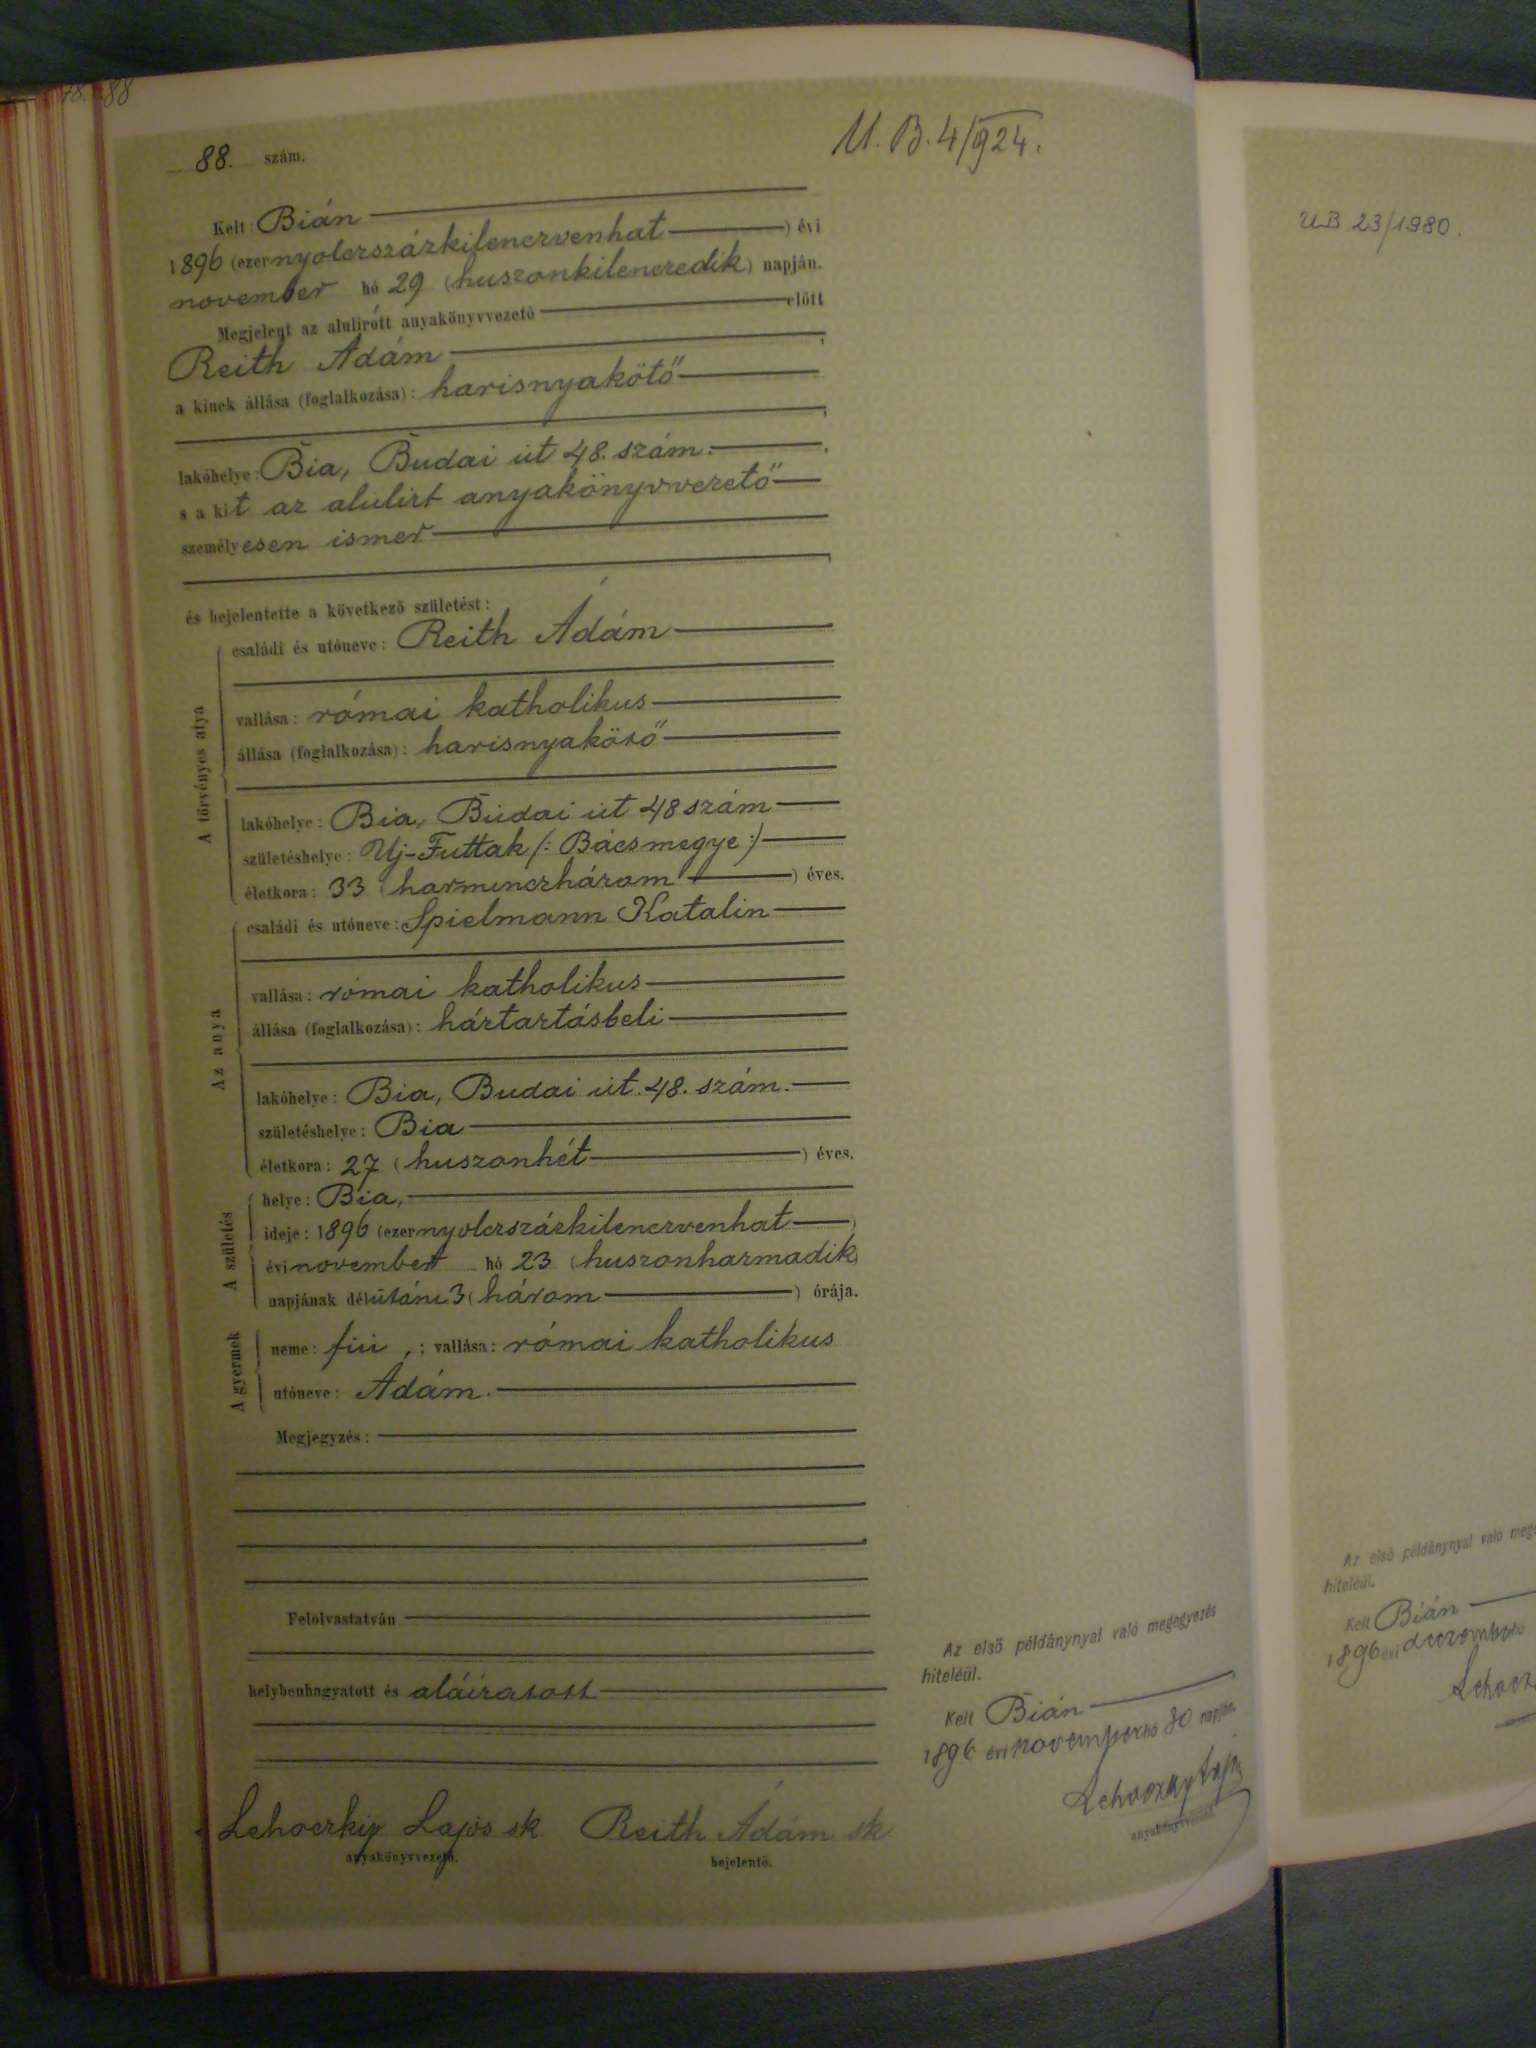 88
88. szám.
U. B. 4/924.
Kelt: Bián
1896 (ezernyolczszázkilenczvenhat) évi
november hó 29 (huszonkilenczedik) napján.
Megjelent az alulirótt anyakönyvvezető előtt
Reith Ádám,
a kinek állása (foglalkozása): harisnyakötő,
lakóhelye: Bia, Budai út 48. szám.,
s a kit az alulirt anyakönyvvezető
személyesen ismer,
és bejelentette a következő születést:
A törvényes atya
családi és utóneve: Reith Ádám
vallása: római katholikus
állása (foglalkozása): harisnyakötő
lakóhelye: Bia, Budai út 48 szám
születéshelye: Uj-Futtak (: Bácsmegye :)
életkora: 33 (harminczhárom) éves.
Az anya
családi és utóneve: Spielmann Katalin
vallása: római katholikus
állása (foglalkozása): háztartásbeli
lakóhelye: Bia, Budai út. 48. szám.
születéshelye: Bia
életkora: 27 (huszonhét) éves.
A születés
helye: Bia,
ideje: 1896 (ezernyolczszázkilenczvenhat)
évi november hó 23 (huszonharmadik)
napjának délutáni 3 (három) órája.
A gyermek
neme: fiú, ; vallása: római katholikus
utóneve: Ádám.
Megjegyzés:
Felolvastatván
helybenhagyatott és aláiratott
Lehoczky Lajos sk Reith Ádám sk
anyakönyvvezető. bejelentő.
Az első példánynyal való megegyezés
hiteléül.
Kelt Bián
1896 évi november hó 30 napján.
Lehoczky Lajos
anyakönyvvezető.
UB 23/1980.
Az első példánynyal való
hiteléül.
Kelt Bián
1896 évi december hó